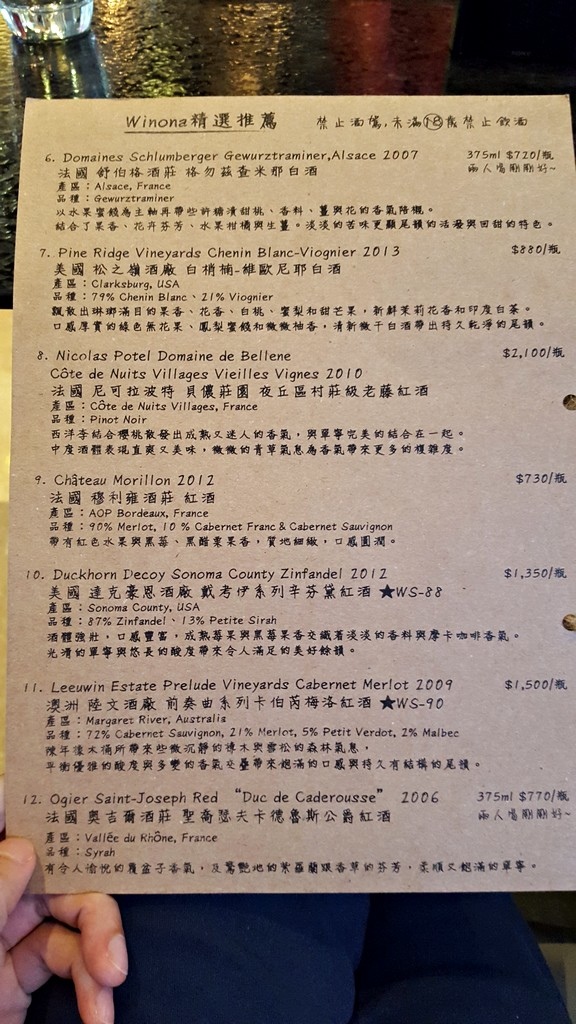 Winona精選推薦 禁止酒駕,未滿18歲禁止飲酒
6. Domaines Schlumberger Gewurztraminer,Alsace 2007 375ml $720/瓶
法國 舒伯格酒莊 格勿茲查米那白酒 兩人喝剛剛好~
產區：Alsace, France
品種：Gewurztraminer
以水果蜜餞為主軸再帶些許糖漬甜桃、香料、薑與花的香氣陪襯。
結合了果香、花卉芬芳、水果柑橘與生薑。淡淡的苦味更顯尾韻的活潑與回甜的特色。
7. Pine Ridge Vineyards Chenin Blanc-Viognier 2013 $880/瓶
美國 松之嶺酒廠 白梢楠-維歐尼耶白酒
產區：Clarksburg, USA
品種：79% Chenin Blanc、21% Viognier
飄散出琳瑯滿目的果香、花香、白桃、蜜梨和甜芒果，新鮮茉莉花香和印度白茶。
口感厚實的綠色無花果、鳳梨蜜餞和微微柚香，清新微干白酒帶出持久乾淨的尾韻。
8. Nicolas Potel Domaine de Bellene $2,100/瓶
Côte de Nuits Villages Vieilles Vignes 2010
法國 尼可拉波特 貝儂莊園 夜丘區村莊級老藤紅酒
產區：Côte de Nuits Villages, France
品種：Pinot Noir
西洋李結合櫻桃散發出成熟又迷人的香氣，與單寧完美的結合在一起。
中度酒體表現直爽又美味，微微的青草氣息為香氣帶來更多的複雜度。
9. Château Morillon 2012 $730/瓶
法國 穆利雍酒莊 紅酒
產區：AOP Bordeaux, France
品種：90% Merlot, 10 % Cabernet Franc & Cabernet Sauvignon
帶有紅色水果與黑莓、黑醋栗果香，質地細緻，口感圓潤。
10. Duckhorn Decoy Sonoma County Zinfandel 2012 $1,350/瓶
美國 達克豪恩酒廠 戴考伊系列辛芬黛紅酒 ★WS-88
產區：Sonoma County, USA
品種：87% Zinfandel、13% Petite Sirah
酒體強壯，口感豐富，成熟莓果與黑莓果香交織著淡淡的香料與摩卡咖啡香氣。
光滑的單寧與悠長的酸度帶來令人滿足的美好餘韻。
11. Leeuwin Estate Prelude Vineyards Cabernet Merlot 2009 $1,500/瓶
澳洲 陸文酒廠 前奏曲系列卡伯芮梅洛紅酒 ★WS-90
產區：Margaret River, Australia
品種：72% Cabernet Sauvignon, 21% Merlot, 5% Petit Verdot, 2% Malbec
陳年橡木桶所帶來些微沉靜的樟木與雪松的森林氣息，
平衡優雅的酸度與多變的香氣交疊帶來飽滿的口感與持久有結構的尾韻。
12. Ogier Saint-Joseph Red "Duc de Caderousse" 2006 375ml $770/瓶
法國 奧吉爾酒莊 聖喬瑟夫卡德魯斯公爵紅酒 兩人喝剛剛好~
產區：Vallée du Rhône, France
品種：Syrah
有令人愉悅的覆盆子香氣，及驚艷地的紫羅蘭跟香草的芬芳，柔順又飽滿的單寧。